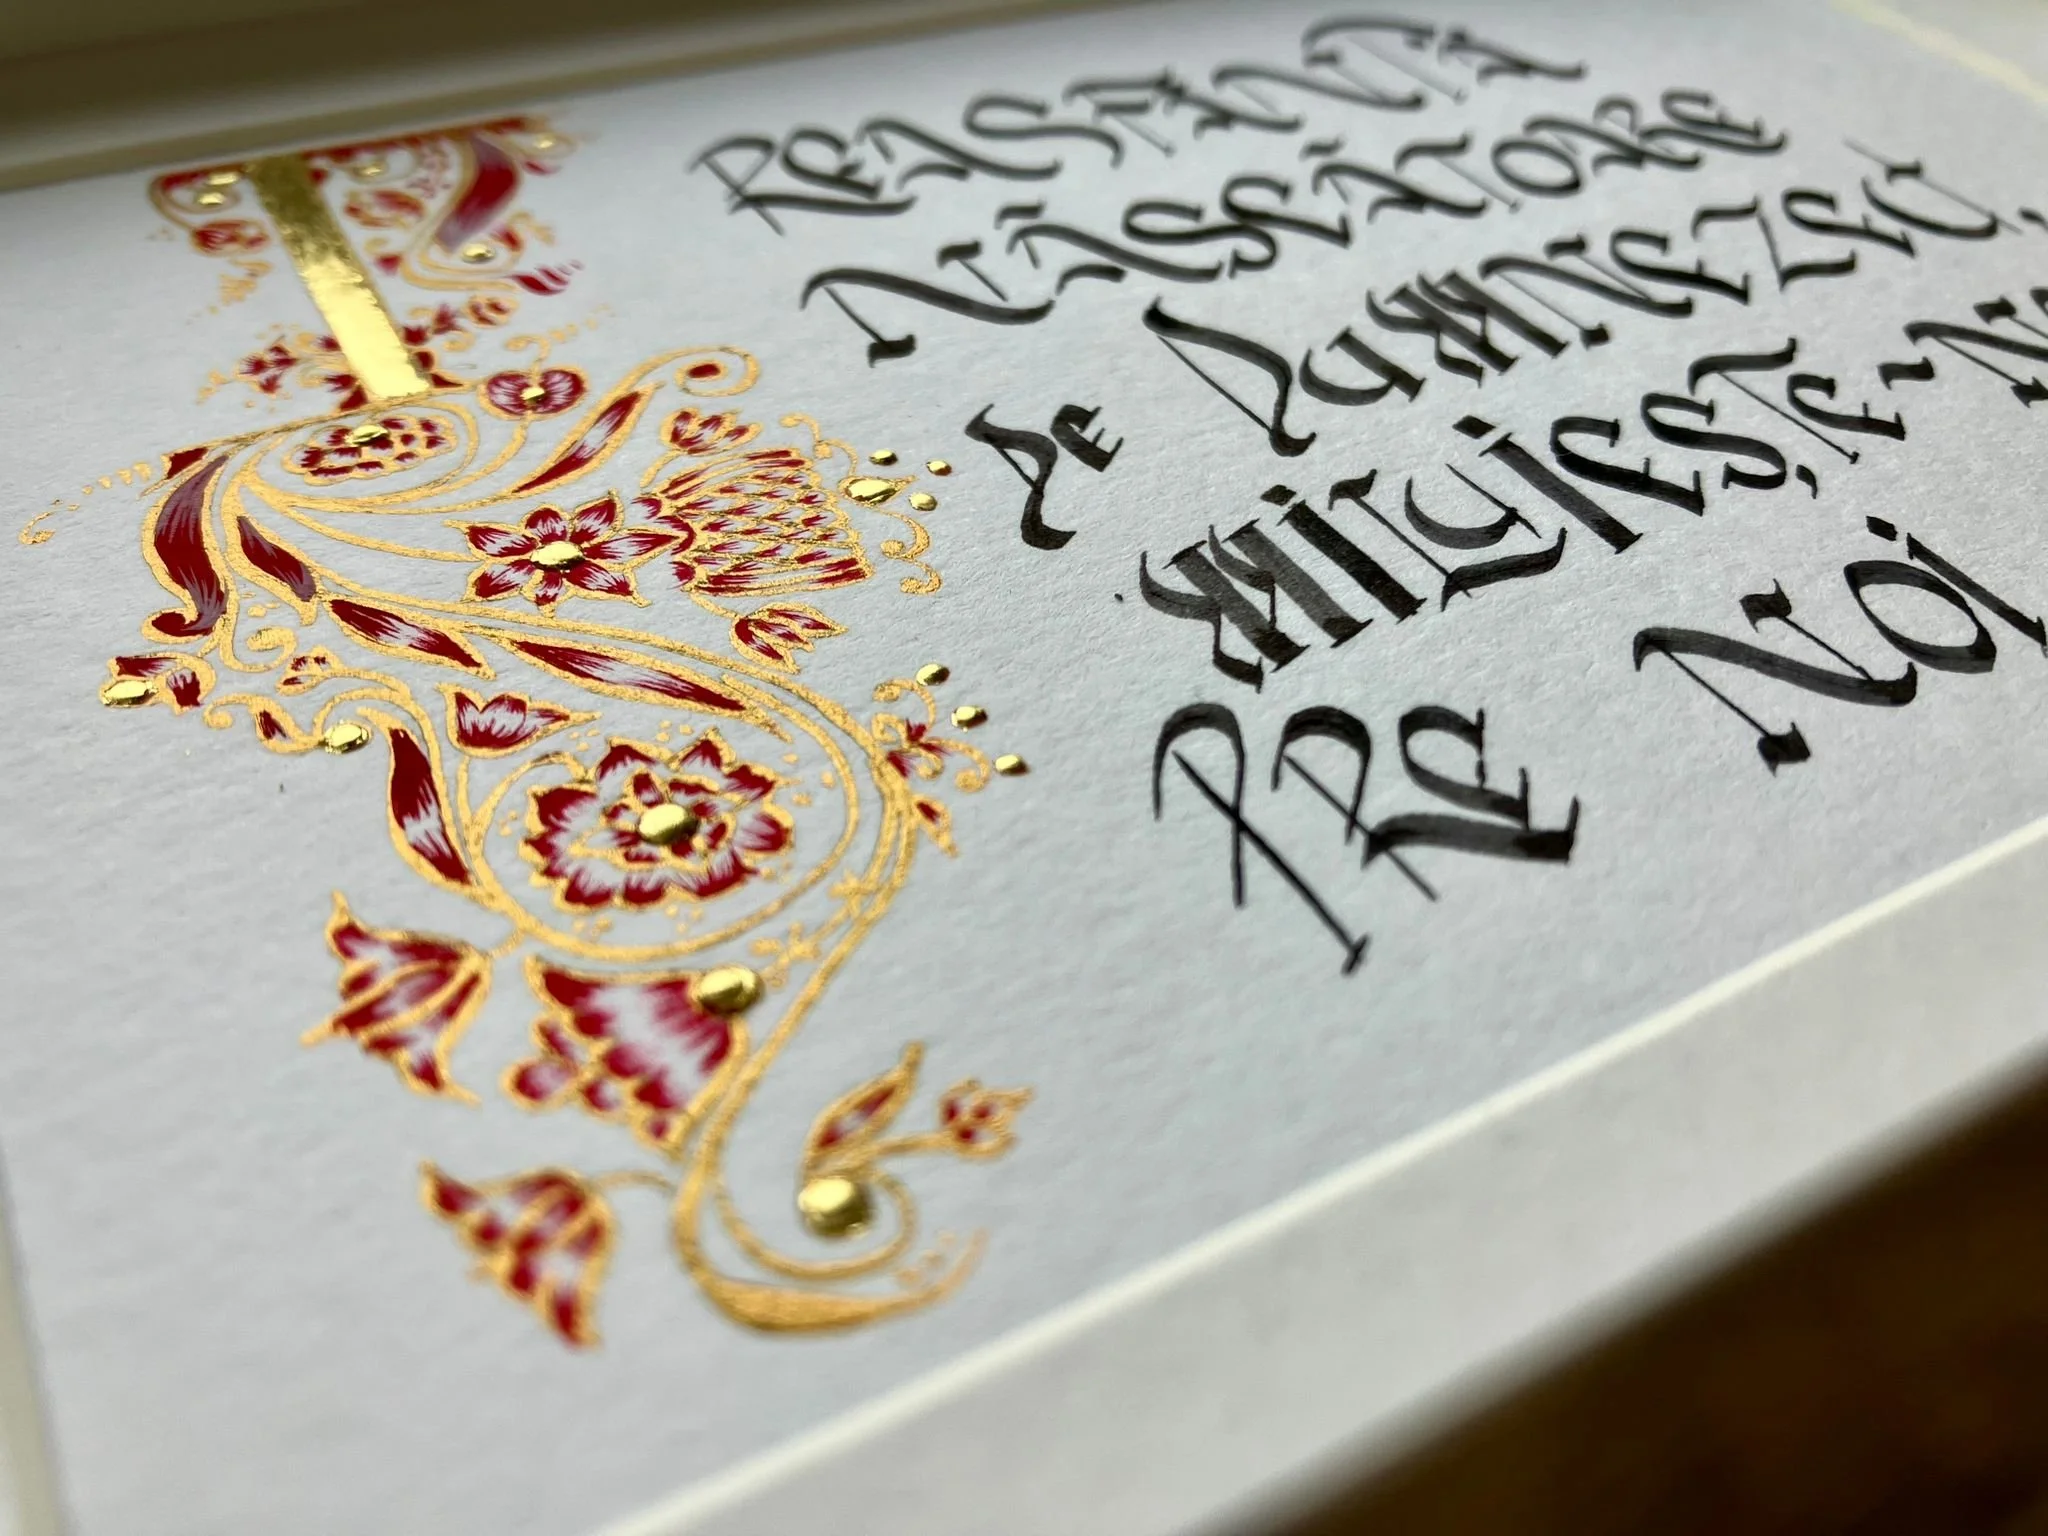 PREASFANTA
NĂSCĂTOARE
DE DUMNEZEU
MILUIEȘTE-NE
PRE NOI